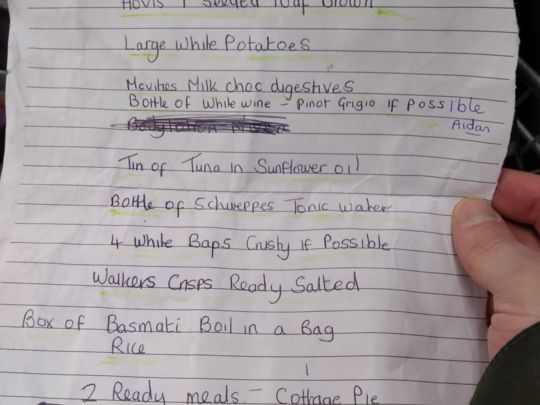 Hovis 1 Seeded loaf Brown
Large White Potatoes
Mcvities Milk choc digestives
Bottle of White wine - Pinot Grigio If Possible
Aidan
Tin of Tuna in Sunflower oil
Bottle of Schweppes Tonic Water
4 White Baps Crusty If Possible
Walkers Crisps Ready Salted
Box of Basmati Boil in a Bag
Rice
1
2 Ready meals - Cottage Pie